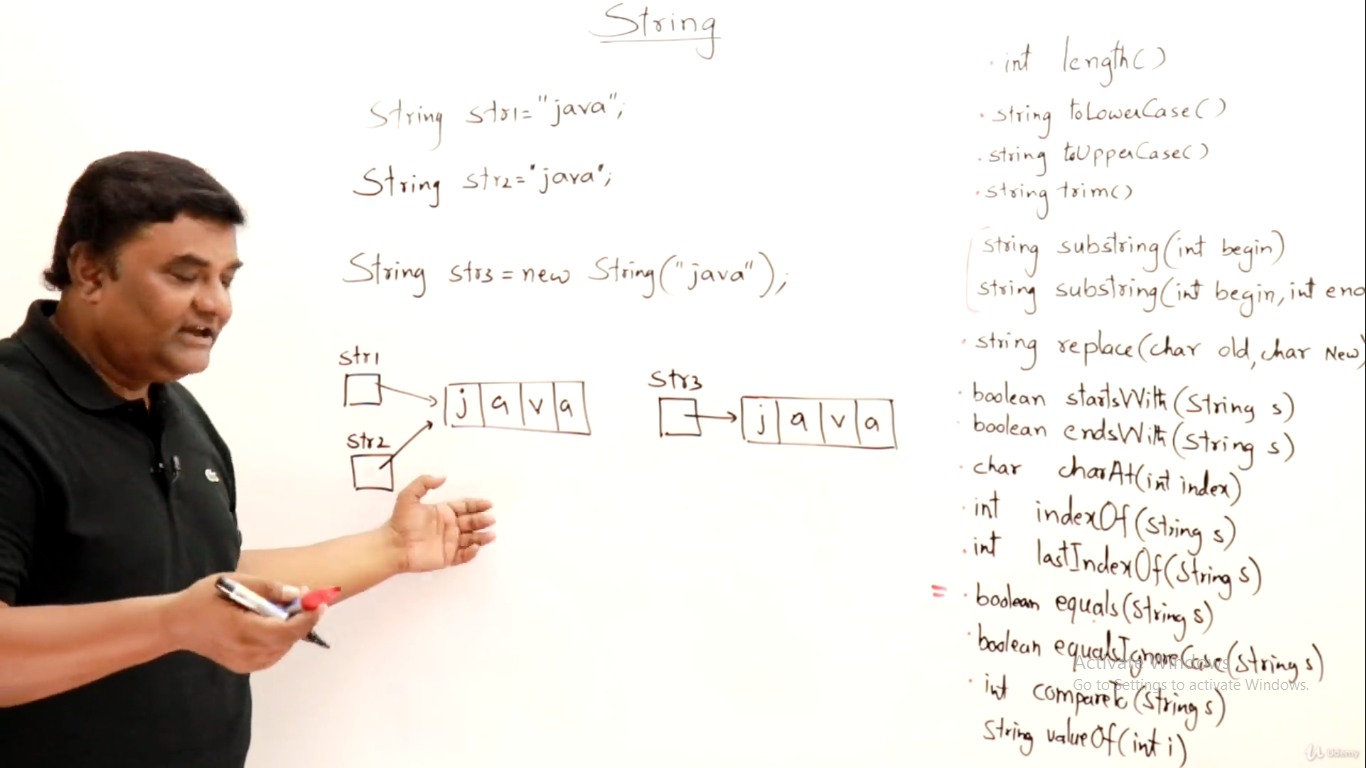 String
String str1="java";
String str2="java";
String str3 = new String("java");
str1
j a v a
str2
str3
j a v a
int length()
string toLowerCase()
string toUpperCase()
string trim()
string substring(int begin)
string substring(int begin, int end
string replace(char old, char New)
boolean startsWith(String s)
boolean endsWith(String s)
char charAt(int index)
int indexOf(String s)
int lastIndexOf(String s)
= boolean equals(String s)
boolean equalsIgnoreCase(String s)
int compareTo(String s)
String valueOf(int i)
Activate Windows
Go to Settings to activate Windows.
Udemy